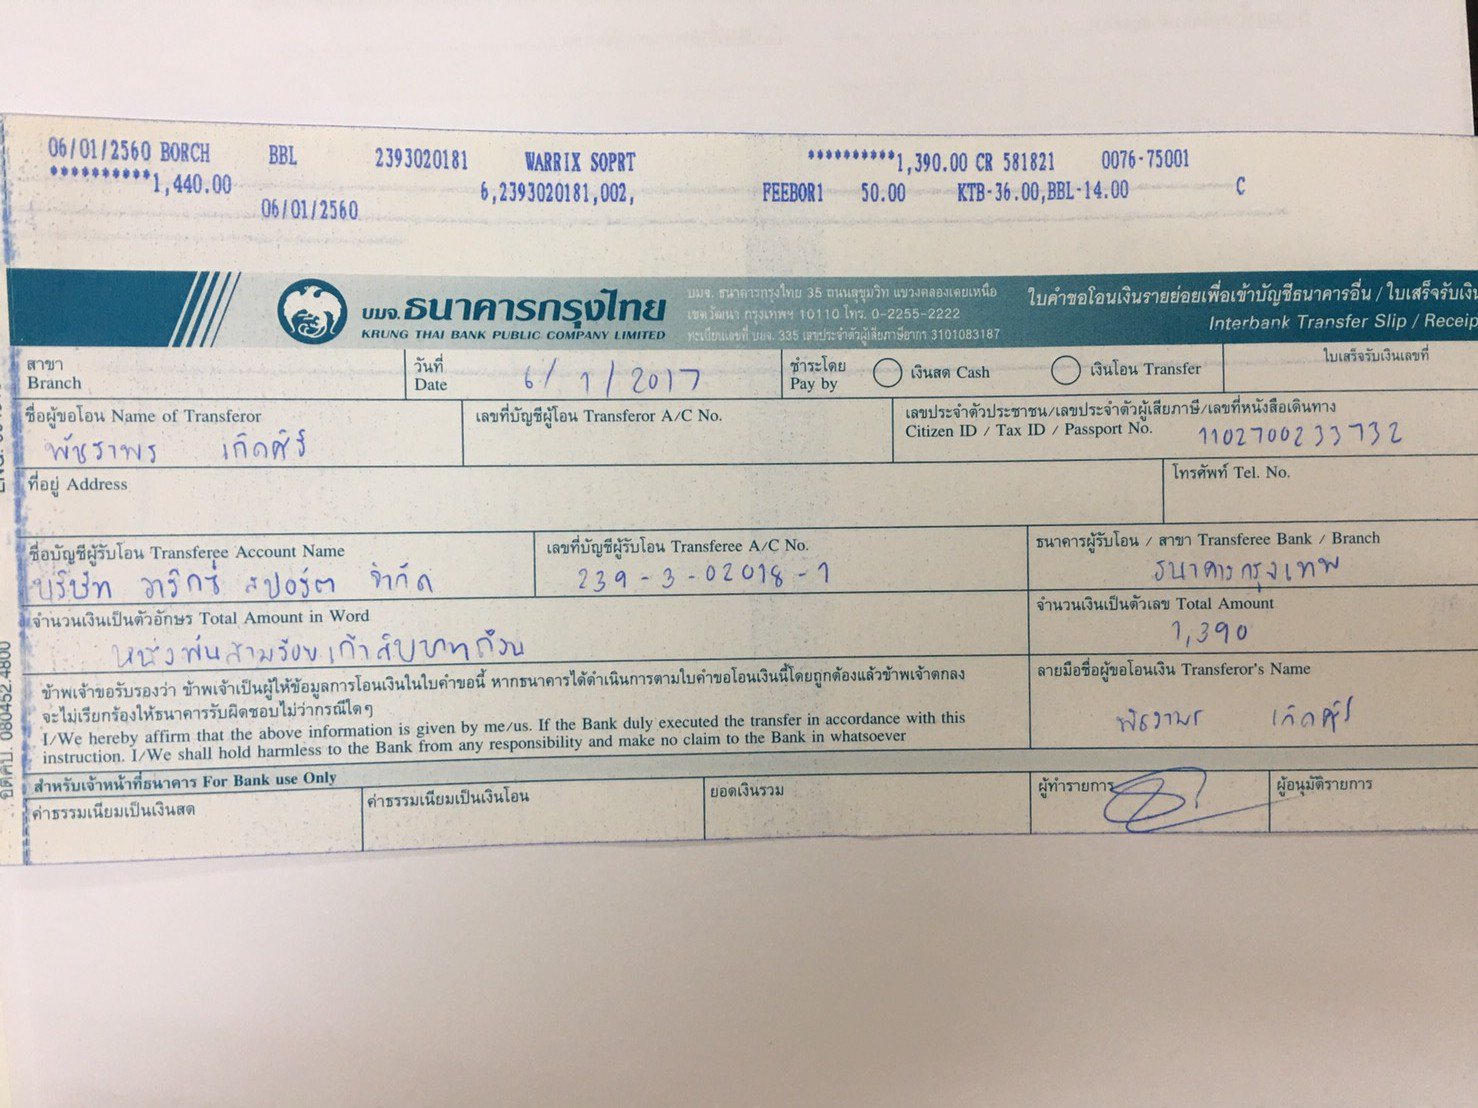 06/01/2560 BORCH BBL 2393020181 WARRIX SOPRT **********1,390.00 CR 581821 0076-75001
**********1,440.00 6,2393020181,002, FEEBOR1 50.00 KTB-36.00,BBL-14.00 C
06/01/2560
บมจ. ธนาคารกรุงไทย
KRUNG THAI BANK PUBLIC COMPANY LIMITED
บมจ. ธนาคารกรุงไทย 35 ถนนสุขุมวิท แขวงคลองเตยเหนือ
เขตวัฒนา กรุงเทพฯ 10110 โทร. 0-2255-2222
ทะเบียนเลขที่ บมจ. 335 เลขประจำตัวผู้เสียภาษีอากร 3101083187
ใบคำขอโอนเงินรายย่อยเพื่อเข้าบัญชีธนาคารอื่น / ใบเสร็จรับเงิน
Interbank Transfer Slip / Receip
สาขา
Branch
วันที่
Date 6/1/2017
ชำระโดย
Pay by
เงินสด Cash
เงินโอน Transfer
ใบเสร็จรับเงินเลขที่
ชื่อผู้ขอโอน Name of Transferor
พัชราพร เกิดศิริ
เลขที่บัญชีผู้โอน Transferor A/C No.
เลขประจำตัวประชาชน/เลขประจำตัวผู้เสียภาษี/เลขที่หนังสือเดินทาง
Citizen ID / Tax ID / Passport No. 1102700233732
ที่อยู่ Address
โทรศัพท์ Tel. No.
ชื่อบัญชีผู้รับโอน Transferee Account Name
บริษัท วาริกซ์ สปอร์ต จำกัด
เลขที่บัญชีผู้รับโอน Transferee A/C No.
239-3-02018-1
ธนาคารผู้รับโอน / สาขา Transferee Bank / Branch
ธนาคารกรุงเทพ
จำนวนเงินเป็นตัวอักษร Total Amount in Word
หนึ่งพันสามร้อยเก้าสิบบาทถ้วน
จำนวนเงินเป็นตัวเลข Total Amount
1,390
ข้าพเจ้าขอรับรองว่า ข้าพเจ้าเป็นผู้ให้ข้อมูลการโอนเงินในใบคำขอนี้ หากธนาคารได้ดำเนินการตามใบคำขอโอนเงินนี้โดยถูกต้องแล้วข้าพเจ้าตกลง
จะไม่เรียกร้องให้ธนาคารรับผิดชอบไม่ว่ากรณีใดๆ
I/We hereby affirm that the above information is given by me/us. If the Bank duly executed the transfer in accordance with this
instruction. I/We shall hold harmless to the Bank from any responsibility and make no claim to the Bank in whatsoever
ลายมือชื่อผู้ขอโอนเงิน Transferor's Name
พัชราพร เกิดศิริ
สำหรับเจ้าหน้าที่ธนาคาร For Bank use Only
ค่าธรรมเนียมเป็นเงินสด
ค่าธรรมเนียมเป็นเงินโอน
ยอดเงินรวม
ผู้ทำรายการ
ผู้อนุมัติรายการ